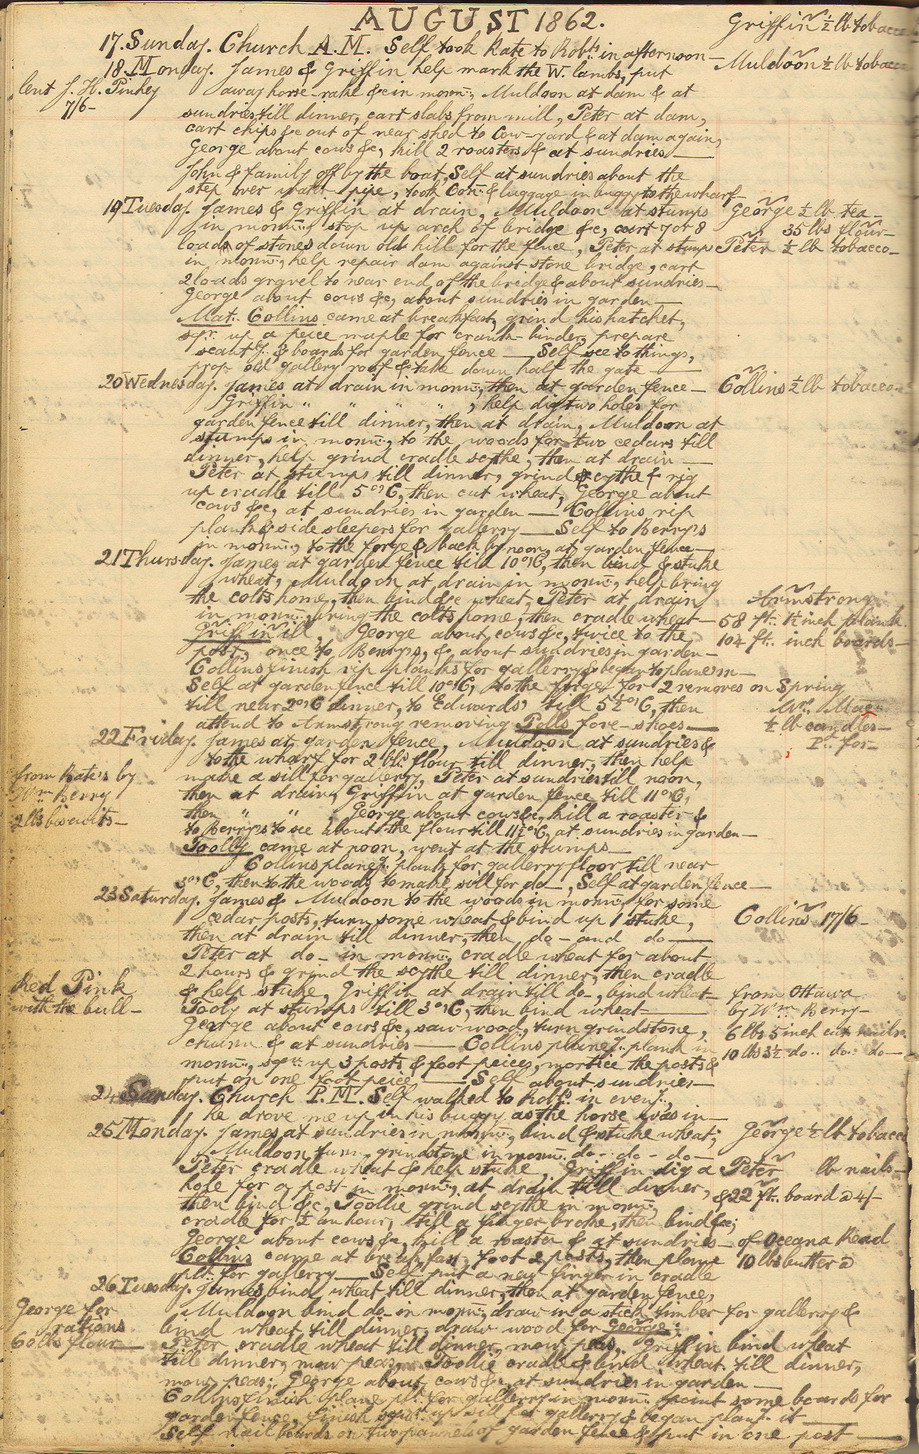 AUGUST 1862.
Griffin ½ lb tobacco
17. Sunday. Church A.M. Self took Kate to Robts. in afternoon—
Muldoon ½ lb tobacco
18 Monday. James & Griffin help mark the W. lambs, put
lent J. H. Pinhey
7/6-
away horse-rake &c in mornng, Muldoon at dam & at
sundries till dinner, cart slabs from mill, Peter at dam,
cart chips &c out of near shed to Cow-yard & at dam again,
George about cows &c, kill 2 roasters & at sundries—
John & family off by the boat, Self at sundries about the
step over water pipe, took Com. & luggage in buggy to the wharf—
19 Tuesday. James & Griffin at drain, Muldoon at stumps
George ½ lb tea—
in mornng, stop up arch of bridge &c, cart 7 or 8
35 lbs flour—
loads of stones down old hill for the fence, Peter at stumps
Peter ½ lb tobacco—
in mornng, help repair dam against stone bridge, cart
2 loads gravel to near end of the bridge & about sundries—
George about cows &c, about sundries in garden—
Mat. Collins came at breakfast, grind his hatchet,
sqr. up a peice maple for crank-binder, prepare
scantg. & boards for garden fence — Self see to things,
prop old gallery roof & take down half the gate —
20 Wednesday. James at drain in mornng, then at garden fence—
Collins ½ lb tobacco—
Griffin " " " " , help dig two holes for
garden fence till dinner, then at drain, Muldoon at
stumps in mornng, to the woods for two cedars till
dinner, help grind cradle scythe, then at drain —
Peter at stumps till dinner, grind scythe & rig
up cradle till 5 o'C, then cut wheat, George about
cows &c, at sundries in garden — Collins rip
plank & side sleepers for gallerry — Self to Berry's
in mornng, to the forge & back by noon, at garden fence—
21 Thursday. James at garden fence till 10 o'C, then bind & stuke
wheat, Muldoon at drain in mornng, help bring
the colts home, then bind &c wheat, Peter at drain
Armstrong
in mornng, bring the colts home, then cradle wheat—
58 ft. 1½ inch plank
Griffin ill, George about cows &c, twice to the
104 ft. inch boards—
post, once to Berry's, &c, about sundries in garden—
Collins finish rip planks for gallerry & began to plane m—
Self at garden fence till 10 o'C, to the forge for 2 removes on Spring
till near 2 o'C dinner, to Edwards' till 5½ o'C, then
attend to Armstrong removing Polls fore-shoes—
½ lb candles—
22 Friday. James at garden fence, Muldoon at sundries &
to the wharf for 2 bls flour till dinner, then help
from Kate's by
Wm Berry
2 lbs biscuits—
make a sill for gallerry, Peter at sundries till noon,
then at drain, Griffin at garden fence till 11 o'C,
then " " , George about cows &c, kill a roaster &
to Berry's to see about the flour till 11½ o'C, at sundries in garden—
Toolly came at noon, went at the stumps—
Collins plane plank for gallerry floor till near
3 o'C, then to the woods to make sill for do—, Self at garden fence—
23 Saturday. James & Muldoon to the woods in mornng for some
cedar posts, turn some wheat & bind up 1 stuke,
Collins 17/6—
then at drain till dinner, then do — and do —
Peter at do — in mornng, cradle wheat for about
2 hours & grind the scythe till dinner, then cradle
Red Pink
with the bull—
& help stuke, Griffin at drain till do—, bind wheat—
from Ottawa
Tooly at stumps till 3 o'C, then bind wheat—
by Wm Berry—
George about cows &c, saw wood, turn grindstone,
6 lbs 5 inch cut nails
churn & at sundries — Collins plane plank in
10 lbs 3½ do.. do.. do—
mornng, sqr. up 3 posts & foot peices, mortice the posts &
put on one foot peice — Self about sundries—
24 Sunday. Church P.M. Self walked to Robts. in eveng,
he drove me up in his buggy as the horse was in—
25 Monday. James at sundries in mornng, bind & stuke wheat;
George ½ lb tobacco
Muldoon turn grindstone in mornng do- do- do—
Peter cradle wheat & help stuke, Griffin dig a
Peter lb nails—
hole for a post in mornng, at drain till dinner,
& 22 ft. board @ 4/-
then bind &c, Toollie grind scythe in mornng,
cradle for ½ an hour, till a finger broke, then bind &c;
George about cows &c, kill a roaster & at sundries—
of Oceana Read
Collins came at breakfast, foot 2 posts, then plane
10 lbs butter @
plk. for gallerry — Self put a new finger in cradle
26 Tuesday. James bind wheat till dinner, then at garden fence,
George for
rations
60 lbs flour—
Muldoon bind do. in mornng, draw in a stick timber for gallerry &
bind wheat till dinner, draw wood for George;
Peter cradle wheat till dinner, mow peas, Griffin bind wheat
till dinner, mow peas, Toollie cradle & bind wheat till dinner,
mow peas; George about cows &c, at sundries in garden—
Collins finish plane plk. for gallerry in mornng, point some boards for
garden fence, finish sqr. up sill for gallerry & began plank it —
Self nail boards on two pannels of garden fence & put in one post —